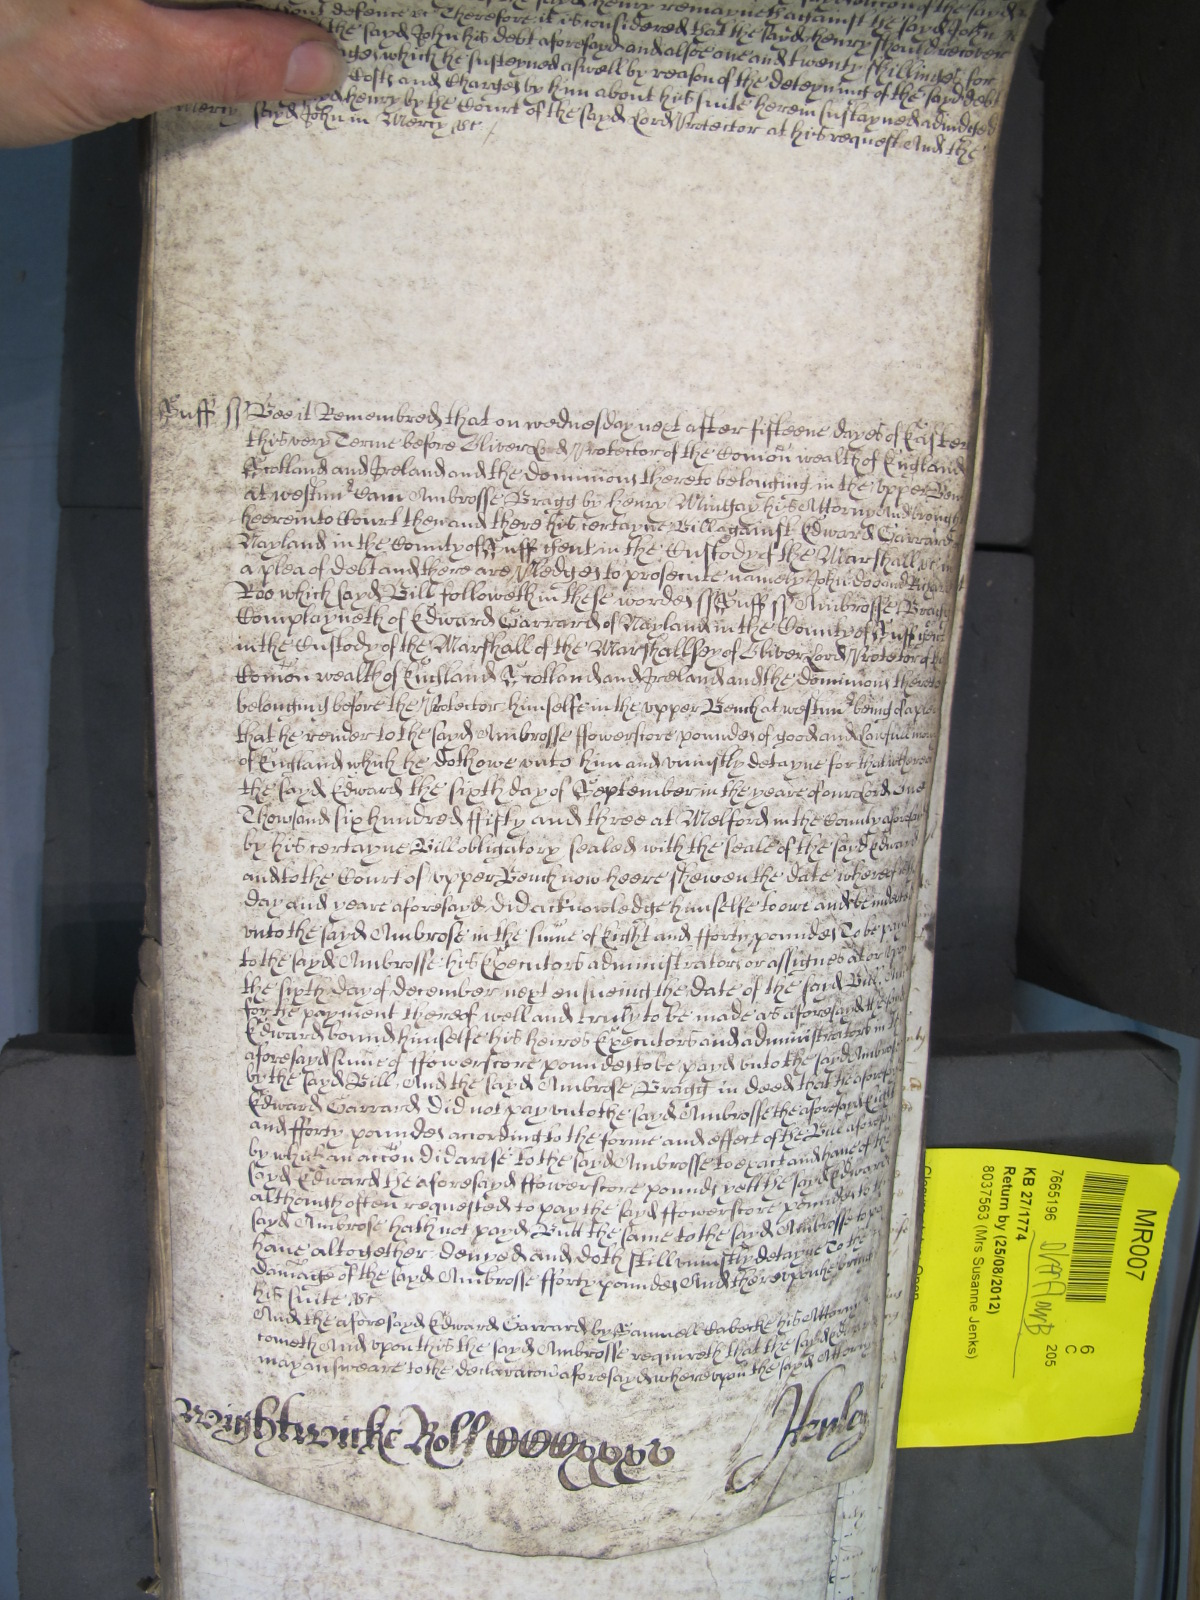 sayd henry remayneth against the sayd John
without defence &c Therefore it is considered that the sayd henry should recover
the sayd John his debt aforesayd and alsoe one and twenty shillings for
which he susteyned aswell by reason of the deteyning of the sayd debt
Costs and Charges by him about his suite herein susteyned adiudged
henry by the Court of the sayd Lord Protector at his request And the
Mercy sayd John in Mercy &c
Suff ss Bee it Remembred that on wednesday next after fifteene dayes of Easter
this very Terme before Oliver Lord Protector of the Comon wealth of England
Scotland and Ireland and the dominions thereto belonging in the upper Ben
at westm Cam Ambrosse Bragg by henry Mintsay his Attorny And brought
heere into Court then and there his certayne Bill against Edward Garrard
Nayland in the County of Suff gent in the Custody of the Marshall &c in
a plea of debt and there are Pledges to prosecute namely John doo and Richard
Roo which sayd Bill followeth in these wordes ss Suff ss Ambrosse Bragg
Complayneth of Edward Garrard of Nayland in the County of Suff gent
in the Custody of the Marshall of the Marshallsey of Oliver Lord Protector of the
Comon wealth of England Scotland and Ireland and the dominions thereto
belonging before the Protector himselfe in the upper Bench at westm being of a plea
that he render to the sayd Ambrosse ffowerscore poundes of good and lawfull mony
of England which he doth owe unto him and uniustly detayne for that whereas
the sayd Edward the sixth day of September in the yeare of our Lord One
Thowsand six hundred fifty and three at Melford in the County aforesayd
by his certayne Bill obligatory sealed with the seale of the sayd Edward
and to the Court of upper Bench now heere shewen the date whereof is
day and yeare aforesayd did acknowledge himselfe to owe and be indebted
unto the sayd Ambrose in the sume of Eight and fforty poundes To be payd
to the sayd Ambrosse his Executors administrators or assignes at or upon
the sixth day of december next ensueing the date of the sayd Bill And
for the payment thereof well and truly to be made as aforesayd the sayd
Edward bound himselfe his heires Executors and administrators in the
aforesayd sume of ffowerscore poundes to be payd unto the sayd Ambrose
by the sayd Bill And the sayd Ambrose Bragg in deed that the aforesayd
Edward Garrard did not pay unto the sayd Ambrosse the aforesayd Eight
and fforty poundes according to the forme and effect of the Bill aforesayd
by which an accon did arise to the sayd Ambrosse to exact and have of the
sayd Edward the aforesayd ffowerscore pounds yett the sayd Edward
although often requested to pay the sayd ffowerscore poundes to the
sayd Ambrose hath not payd Butt the same to the sayd Ambrosse to pay
have altogether denyed and doth still uniustly detayne To the
damage of the sayd Ambrosse fforty poundes And thereupon he bringeth
his suite &c
And the aforesayd Edward Garrard by Samuell his Attorny
cometh And upon this the sayd Ambrosse requireth that the sayd Edward
may answeare to the declaracon aforesayd whereupon the sayd Attorny
Wightwicke Roll Henley
MR007
6
C
205
7665196
KB 27/1774
Return by (25/08/2012)
8037563 (Mrs Susanne Jenks)